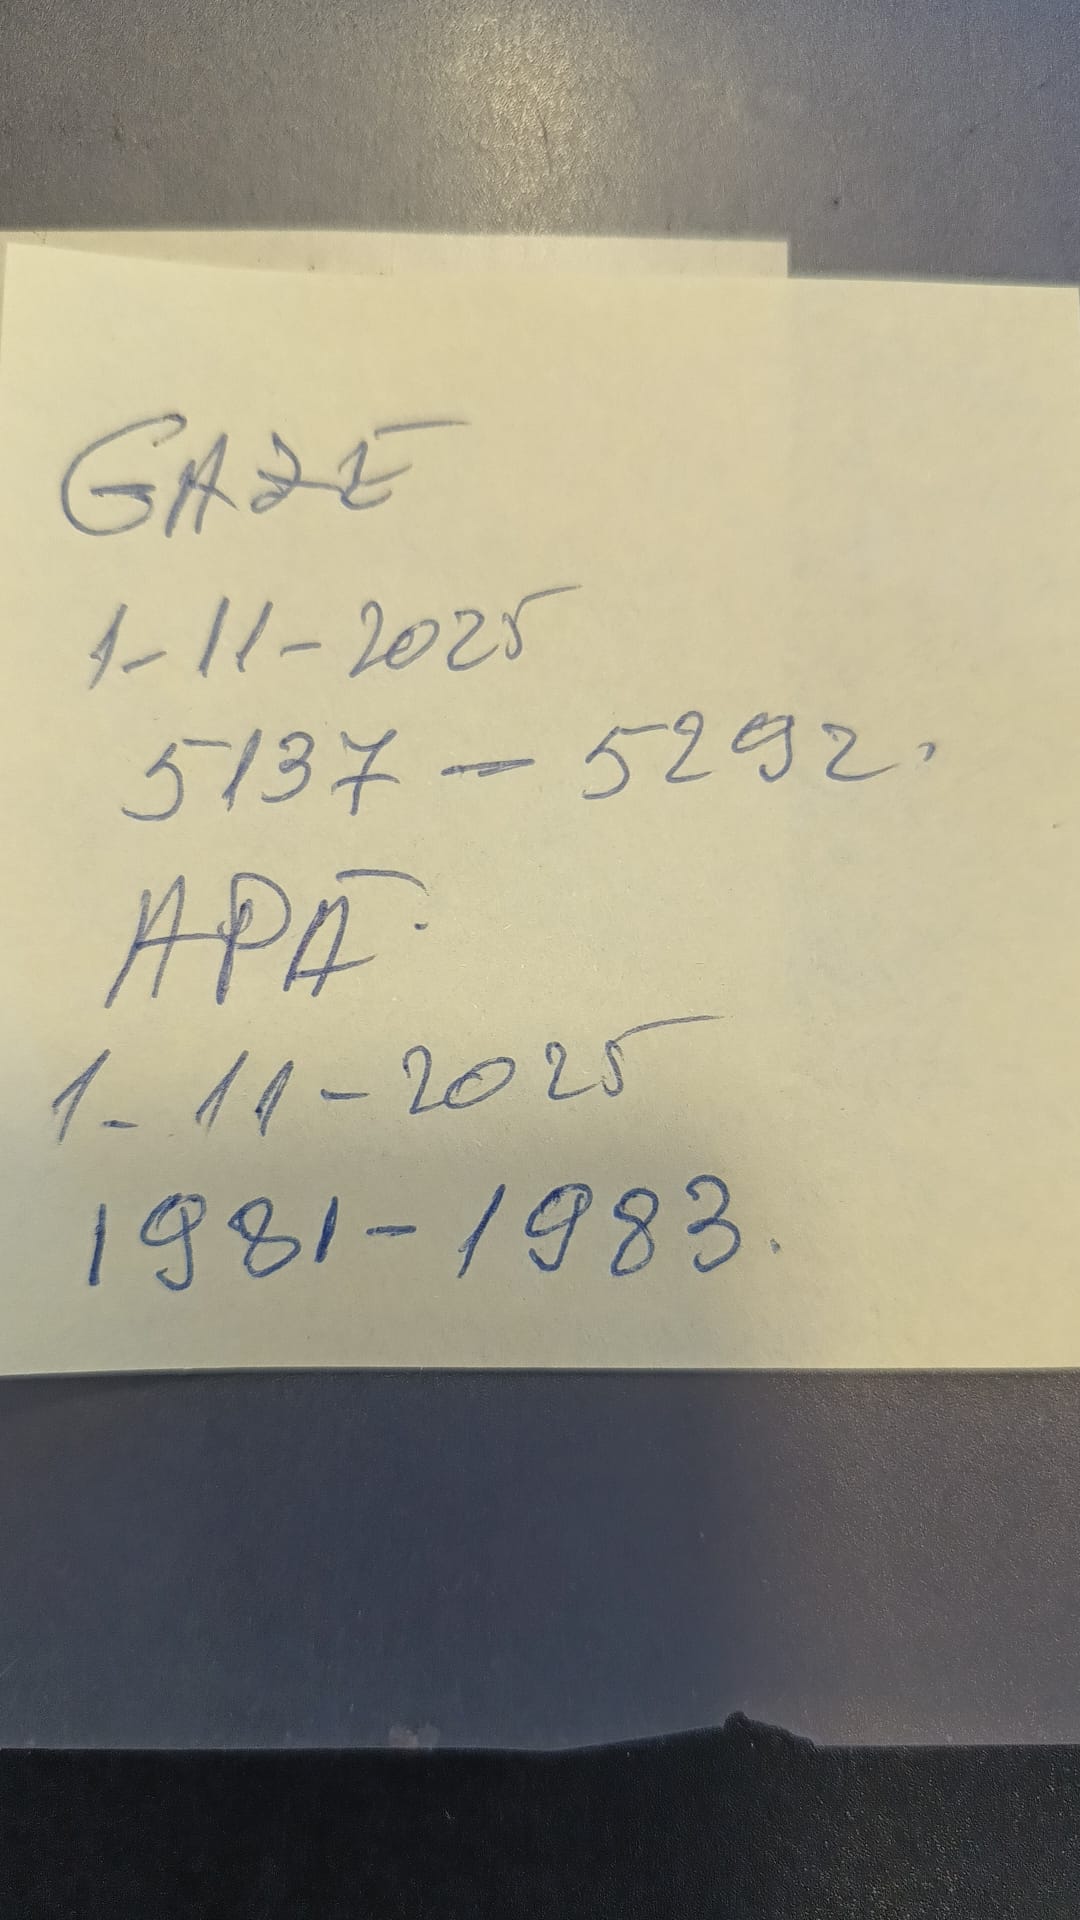 GAZE
1-11-2025
5137 - 5292.
APĂ.
1-11-2025
1981-1983.